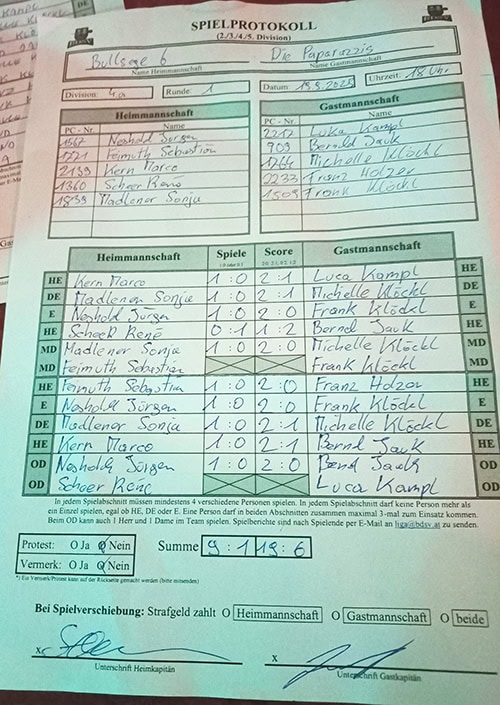 SPIELPROTOKOLL
(2./3./4./5. Division)
Bullseye 6 Die Paparazzis
Name Heimmannschaft Name Gastmannschaft
Division: 4. Runde: 1 Datum: Uhrzeit: 18 Uhr
Heimmannschaft Gastmannschaft
PC - Nr. Name PC - Nr. Name
1567 Neshold Jürgen 2212 Luka Kampl
1221 Feimuth Sebastian 909 Bernd Jauk
2139 Kern Marco 1264 Michelle Klöckl
1360 Scheer René 2233 Franz Holzer
1839 Madlener Sonja 1509 Frank Klöckl
Heimmannschaft Spiele Score Gastmannschaft
HE Kern Marco 1 : 0 2 : 1 Luca Kampl HE
DE Madlener Sonja 1 : 0 2 : 1 Michelle Klöckl DE
E Neshold Jürgen 1 : 0 2 : 0 Frank Klöckl E
HE Scheer René 0 : 1 1 : 2 Bernd Jauk HE
MD Madlener Sonja 1 : 0 2 : 0 Michelle Klöckl MD
MD Feimuth Sebastian Frank Klöckl MD
HE Feimuth Sebastian 1 : 0 2 : 0 Franz Holzer HE
E Neshold Jürgen 1 : 0 2 : 0 Frank Klöckl E
DE Madlener Sonja 1 : 0 2 : 1 Michelle Klöckl DE
HE Kern Marco 1 : 0 2 : 1 Bernd Jauk HE
OD Neshold Jürgen 1 : 0 2 : 0 Bernd Jauk OD
OD Scheer René Luca Kampl OD
In jedem Spielabschnitt müssen mindestens 4 verschiedene Personen spielen. In jedem Spielabschnitt darf keine Person mehr als
ein Einzel spielen, egal ob HE, DE oder E. Eine Person darf in beiden Abschnitten zusammen maximal 3-mal zum Einsatz kommen.
Beim OD kann auch 1 Herr und 1 Dame im Team spielen. Spielberichte sind nach Spielende per E-Mail an liga@bdsv.at zu senden.
Protest: O Ja O Nein Summe 9 : 1 19 : 6
Vermerk: O Ja O Nein
*) Ein Vermerk/Protest kann auf der Rückseite gemacht werden (bitte ankreuzen)
Bei Spielverschiebung: Strafgeld zahlt O Heimmannschaft O Gastmannschaft O beide
X X
Unterschrift Heimkapitän Unterschrift Gastkapitän